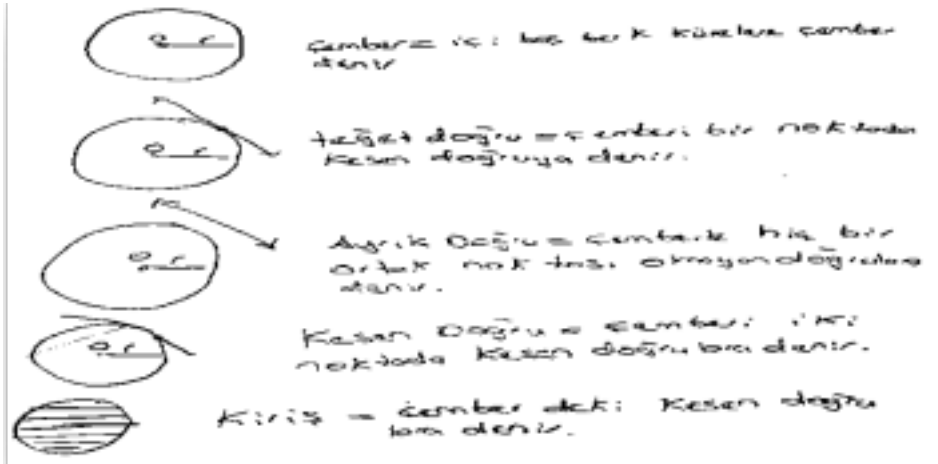 O r
Çember = içi boş berk kürelere çember
denir
O r
teğet doğru = çemberi bir noktada
kesen doğruya denir.
O r
Ayrık Doğru = çemberle hiç bir
ortak noktası olmayan doğrulara
denir.
O r
Kesen Doğru = çemberi iki
noktada kesen doğrulara denir.
Kiriş = çemberdeki kesen doğru
lara denir.